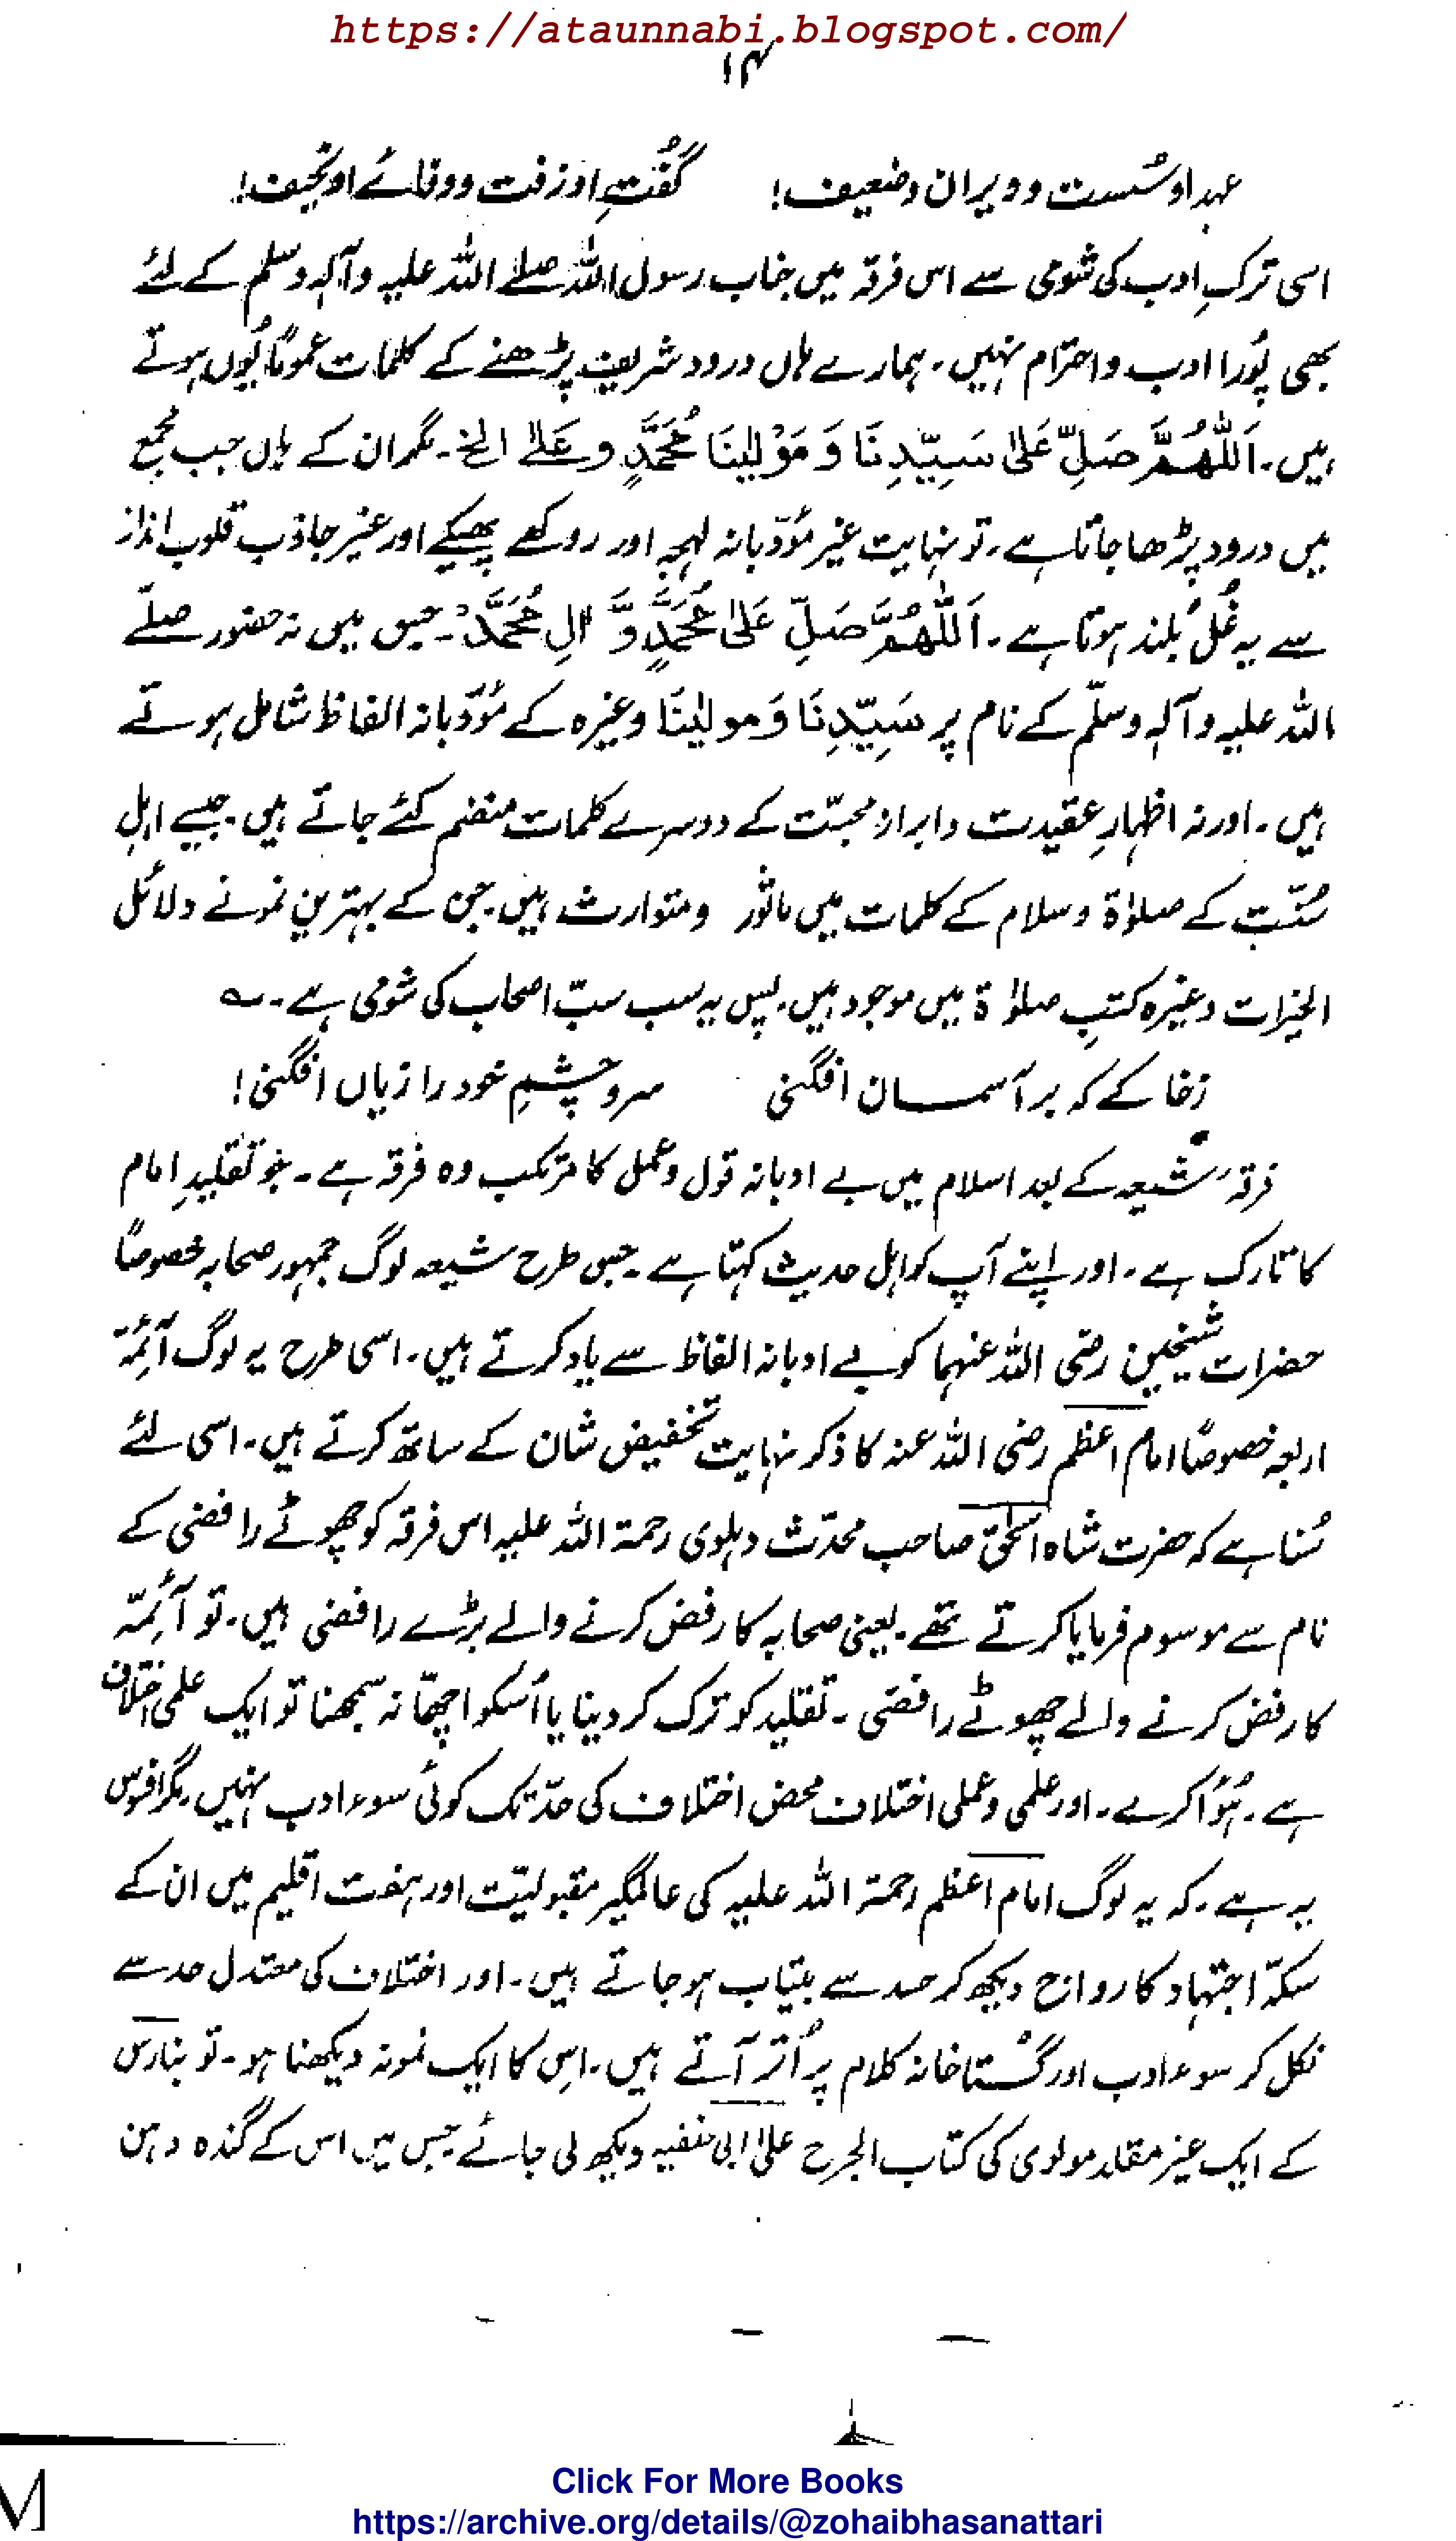 https://ataunnabi.blogspot.com/
۱۴
عہد او سُست و ویران و ضعیف! گُفتِ او زفت و وفائے او نحیف!
اسی ترکِ ادب کی شومی سے اس فرقہ میں جناب رسول اللہ صلے اللہ علیہ وآلہ وسلم کے لئے
بھی پُورا ادب و احترام نہیں۔ ہمارے ہاں درود شریف پڑھنے کے کلمات عموماً یُوں ہوتے
ہیں۔ اَللّٰھُمَّ صَلِّ عَلیٰ سَیِّدِنَا وَ مَوْلٰینَا مُحَمَّدٍ و عَلےٰ الخ۔ مگر ان کے ہاں جب مجمع
میں درود پڑھا جاتا ہے۔ تو نہایت غیر مؤدّبانہ لہجہ اور روکھے پھیکے اور غیر جاذب قلوب انداز
سے یہ غُل بُلند ہوتا ہے۔ اَللّٰھُمَّ صَلِّ عَلیٰ مُحَمَّدٍ وَّ اٰلِ مُحَمَّدْ۔ جس میں نہ حضور صلّے
اللہ علیہ وآلہ وسلّم کے نام پر سَیِّدِنَا وَ مولٰینَا وغیرہ کے مؤدّبانہ الفاظ شامل ہوتے
ہیں۔ اور نہ اظہارِ عقیدت و ابرازِ محبّت کے دوسرے کلمات منضم کئے جاتے ہیں۔ جیسے اہلِ
سُنّت کے صلوٰۃ و سلام کے کلمات میں ماثور و متوارث ہیں۔ جن کے بہترین نمونے دلائل
الخیرات وغیرہ کتبِ صلوٰۃ میں موجود ہیں۔ پس یہ سب سبّ اصحاب کی شومی ہے۔ ؎
زخاکے کہ بر آسمان افگنی سر و چشمِ خود را زیاں افگنی!
فرقہ شیعہ کے بعد اسلام میں بے ادبانہ قول و عمل کا مرتکب وہ فرقہ ہے۔ جو تقلیدِ امام
کا تارک ہے۔ اور اپنے آپ کو اہل حدیث کہتا ہے۔ جس طرح شیعہ لوگ جمہور صحابہ خصوصاً
حضرات شیخین رضی اللہ عنہما کو بے ادبانہ الفاظ سے یاد کرتے ہیں۔ اسی طرح یہ لوگ آئمّہ
اربعہ خصوصاً امام اعظم رضی اللہ عنہ کا ذکر نہایت تخفیض شان کے ساتھ کرتے ہیں۔ اسی لئے
سُنا ہے کہ حضرت شاہ اسحٰق صاحب محدّث دہلوی رحمۃ اللہ علیہ اس فرقہ کو چھوٹے رافضی کے
نام سے موسوم فرمایا کرتے تھے۔ یعنی صحابہ کا رفض کرنے والے بڑے رافضی ہیں۔ تو آئمّہ
کا رفض کرنے والے چھوٹے رافضی۔ تقلید کو ترک کر دینا یا اُسکو اچھّا نہ سمجھنا تو ایک علمی اختلاف
ہے۔ ہُؤا کرے۔ اور علمی و عملی اختلاف محض اختلاف کی حدّ تک کوئی سوء ادب نہیں۔ مگر افسوس
یہ ہے۔ کہ یہ لوگ امام اعظم رحمۃ اللہ علیہ کی عالمگیر مقبولیّت اور ہفت اقلیم میں ان کے
سکہّ اجتہاد کا رواج دیکھ کر حسد سے بیتاب ہو جاتے ہیں۔ اور اختلاف کی معتدل حد سے
نکل کر سوء ادب اور گُستاخانہ کلام پر اُتر آتے ہیں۔ اِس کا ایک نمونہ دیکھنا ہو۔ تو بنارس
کے ایک غیر مقلد مولوی کی کتاب الجرح علیٰ ابی حنفیہ دیکھ لی جائے جس میں اس کے گندہ دہن
Click For More Books
https://archive.org/details/@zohaibhasanattari